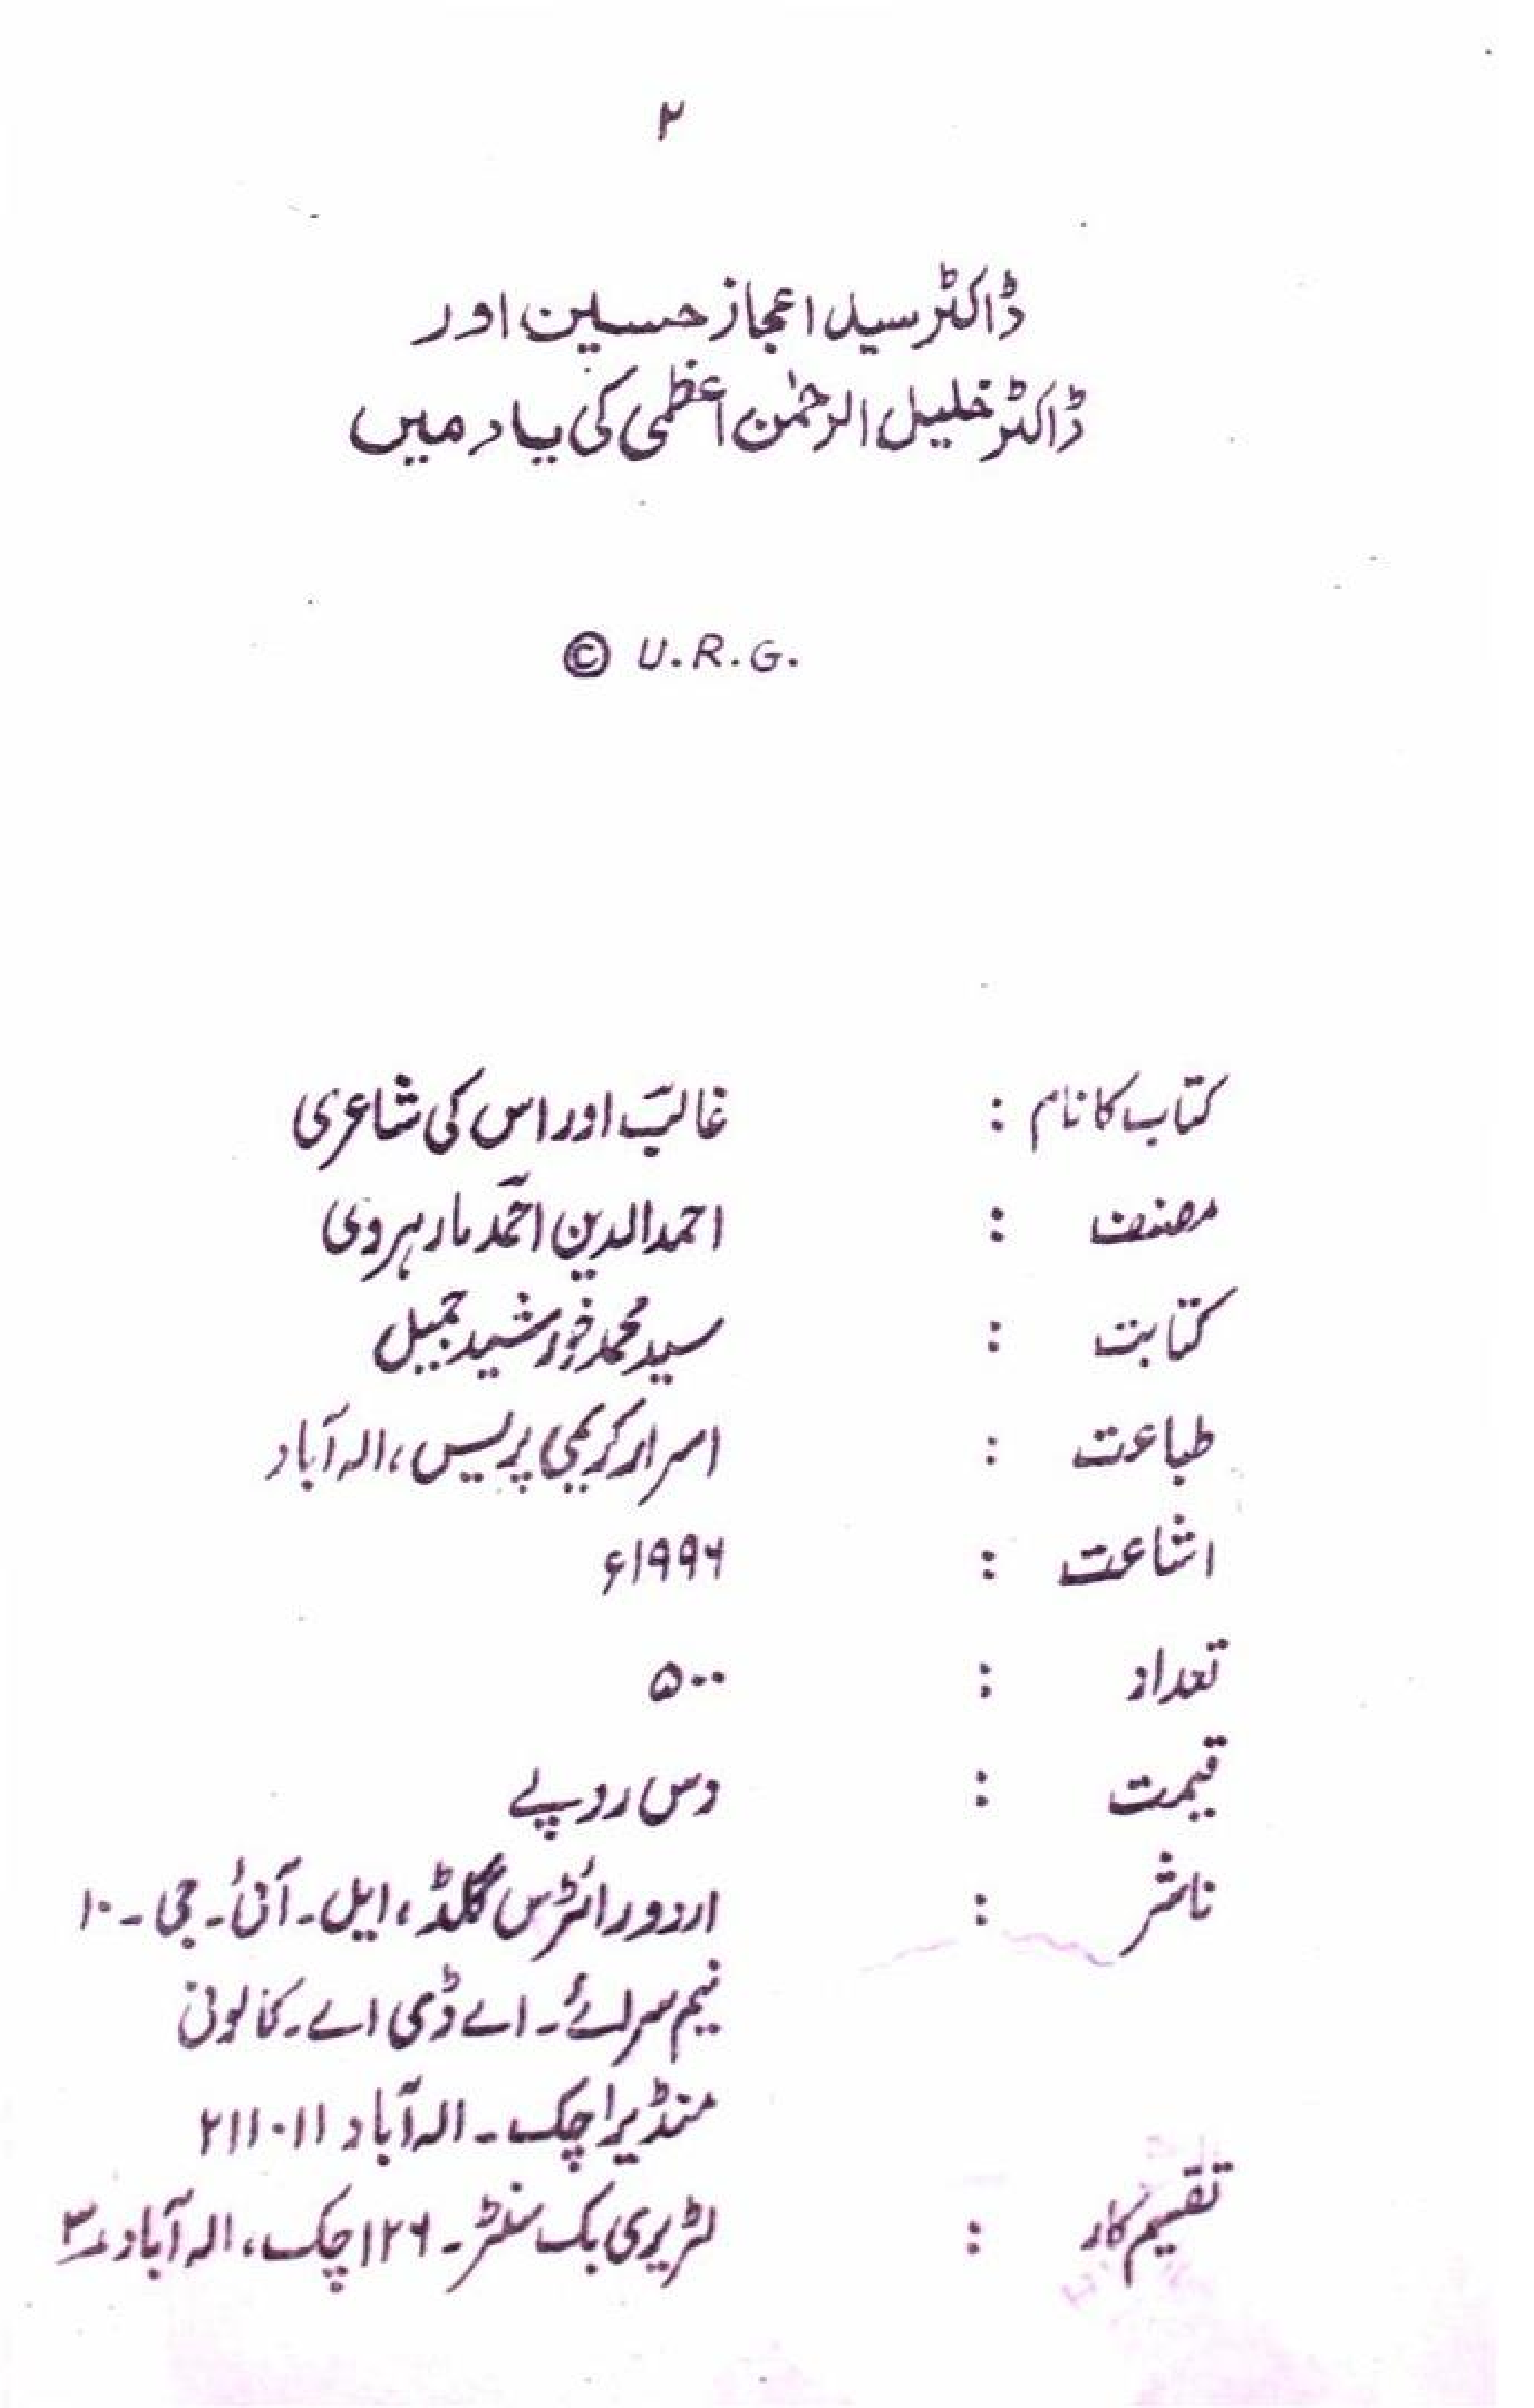 ۲
ڈاکٹر سید اعجاز حسین اور
ڈاکٹر خلیل الرحمٰن اعظمی کی یاد میں
© U.R.G.
کتاب کا نام : غالبؔ اور اس کی شاعری
مصنف : احمد الدین احمدؔ مارہروی
کتابت : سید محمد خورشید جمیل
طباعت : اسرار کریمی پریس، الہ آباد
اشاعت : ۱۹۹۶ء
تعداد : ۵۰۰
قیمت : دس روپے
ناشر : اردو رائٹرس گلڈ، ایل۔ آئی۔ جی۔ ۱۰
نیم سرائے۔ اے ڈی اے۔ کالونی
منڈیرا چک۔ الہ آباد ۲۱۱۰۱۱
تقسیم کار : لٹریری بک سنٹر۔ ۱۲۶ چک، الہ آباد ۳